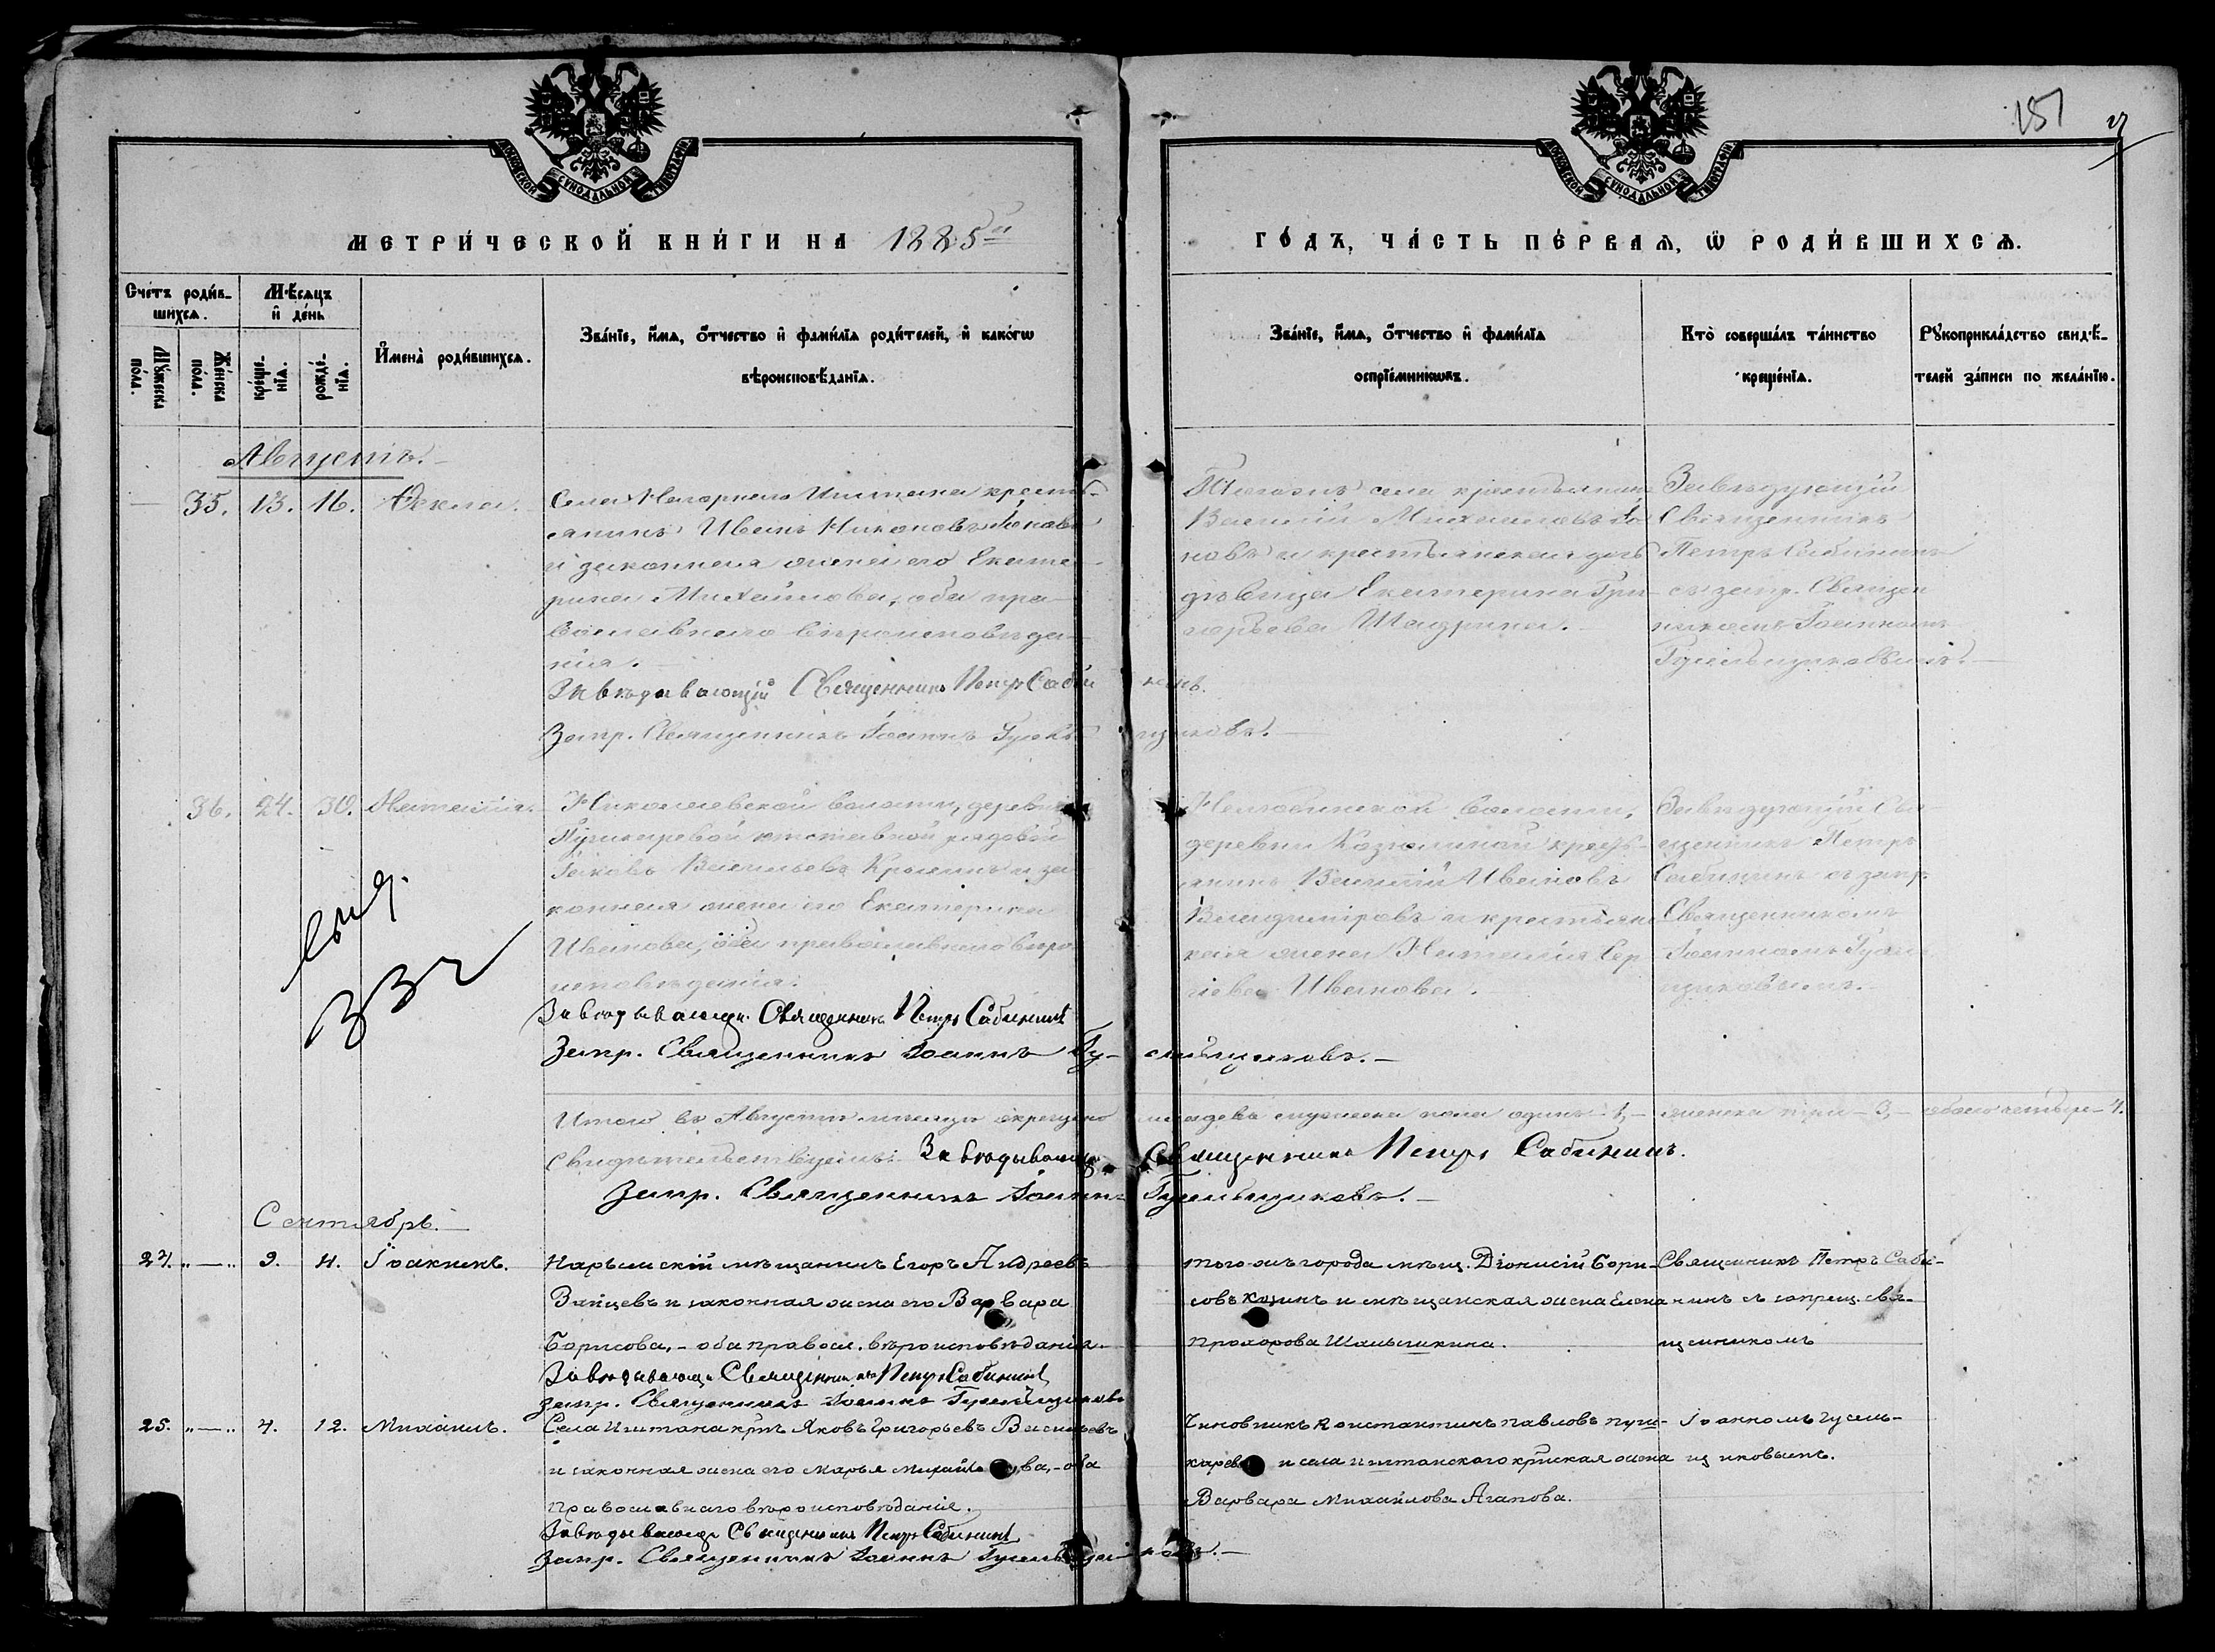 151 27
МОСКОВСКОЙ СУНОДАЛЬНОЙ ТИПОГРАФІИ
МОСКОВСКОЙ СУНОДАЛЬНОЙ ТИПОГРАФІИ
МЕТРИ́ЧЕСКОЙ КНИ́ГИ НА 1885й
ГО́ДЪ, ЧА́СТЬ ПЕ́РВАѦ, Ѿ РОДИ́ВШИХСѦ.
Счетъ роди́в-
шихсѧ.
Мѣсяцъ
и де́нь
Мꙋжеска
по́ла.
Же́нска
по́ла.
креще́-
нїѧ.
рожде́-
нїѧ.
Имена̀ роди́вшихсѧ.
Зва́нїе, и́мѧ, о́тчество и фами́лїѧ роди́телей, и како́гѡ
вѣроисповѣ́данїѧ.
Зва́нїе, и́мѧ, о́тчество и фами́лїѧ
воспрїе́мникѡвъ.
Кто̀ соверша́лъ та́инство
креще́нїѧ.
Рꙋкоприкла́дство свидѣ́-
телей за́писи по жела́нїю.
Августъ.
35. 13. 16. Ѳекла.
Села Нагорнаго Иштана кресть-
янинъ Иванъ Никоновъ
и законная жена его Екате-
рина Михайлова, оба пра-
вославнаго вѣроисповѣда-
нія.
Завѣдывающій Священникъ Петръ Сабининъ.
Запр. Священникъ Іоаннъ Гусельщиковъ.
Тогоже села крестьянинъ
Василій Михайловъ
новъ и крестьянская дочь
дѣвица Екатерина Гри-
горьева Шадрина.
Завѣдующій
Священникъ
Петръ Сабининъ
съ запр. Священ
никомъ Іоанномъ
Гусельщиковымъ.
36. 24. 30. Наталія.
Николаевской волости, деревни
отставной рядовой
Іаковъ Васильевъ и за
конная жена его Екатерина
Иванова, оба православнаго вѣро
исповѣданія.
Завѣдывающ. Священникъ Петръ Сабининъ
Запр. Священникъ Іоаннъ Гусельщиковъ.
Нелюбинской волости,
деревни кресть-
янинъ Василій Ивановъ
Владиміровъ и крестьянс
кая жена Наталія Сер
гіева Иванова.
Завѣдующій Свя-
щенникъ Петръ
Сабининъ съ запр.
Священникомъ
Іоанномъ Гусель
щиковымъ.
выд.
Итого въ Августѣ мѣсяцѣ окрещено младенцевъ мужеска пола одинъ - 1, - женска три - 3, - обоего четыре - 4.
Свидѣтельствуемъ: Завѣдывающ. Священникъ Петръ Сабининъ.
Запр. Священникъ Іоаннъ Гусельщиковъ.
Сентябрь.
24. „—„ 2. 4. Іоакимъ.
Нарымскій мѣщанинъ Егоръ Андреевъ
Зайцевъ и законная жена его Варвара
Борисова, - оба правосл. вѣроисповѣданія.
Завѣдывающ. Священникъ Петръ Сабининъ
Запр. Священникъ Іоаннъ Гусельщиковъ
того-жъ города мѣщ. Діонисій Бори-
совъ и мѣщанская жена Елена
Прохорова Шамышкина.
Священникъ Петръ Саби-
нинъ съ запрещ. свя-
щенникомъ
25. „—„ 4. 12. Михаилъ.
Села Иштана крнъ Яковъ Григорьевъ Васильевъ
и законная жена его Марья Михайлова, - оба
православнаго вѣроисповѣданія.
Завѣдывающ. Священникъ Петръ Сабининъ
Запр. Священникъ Іоаннъ Гусельщиковъ.
Чиновникъ Константинъ Павловъ Пуш-
каревъ и села Иштанскаго крнская жена
Варвара Михайлова Агапова.
Іоанномъ Гусель-
щиковымъ.